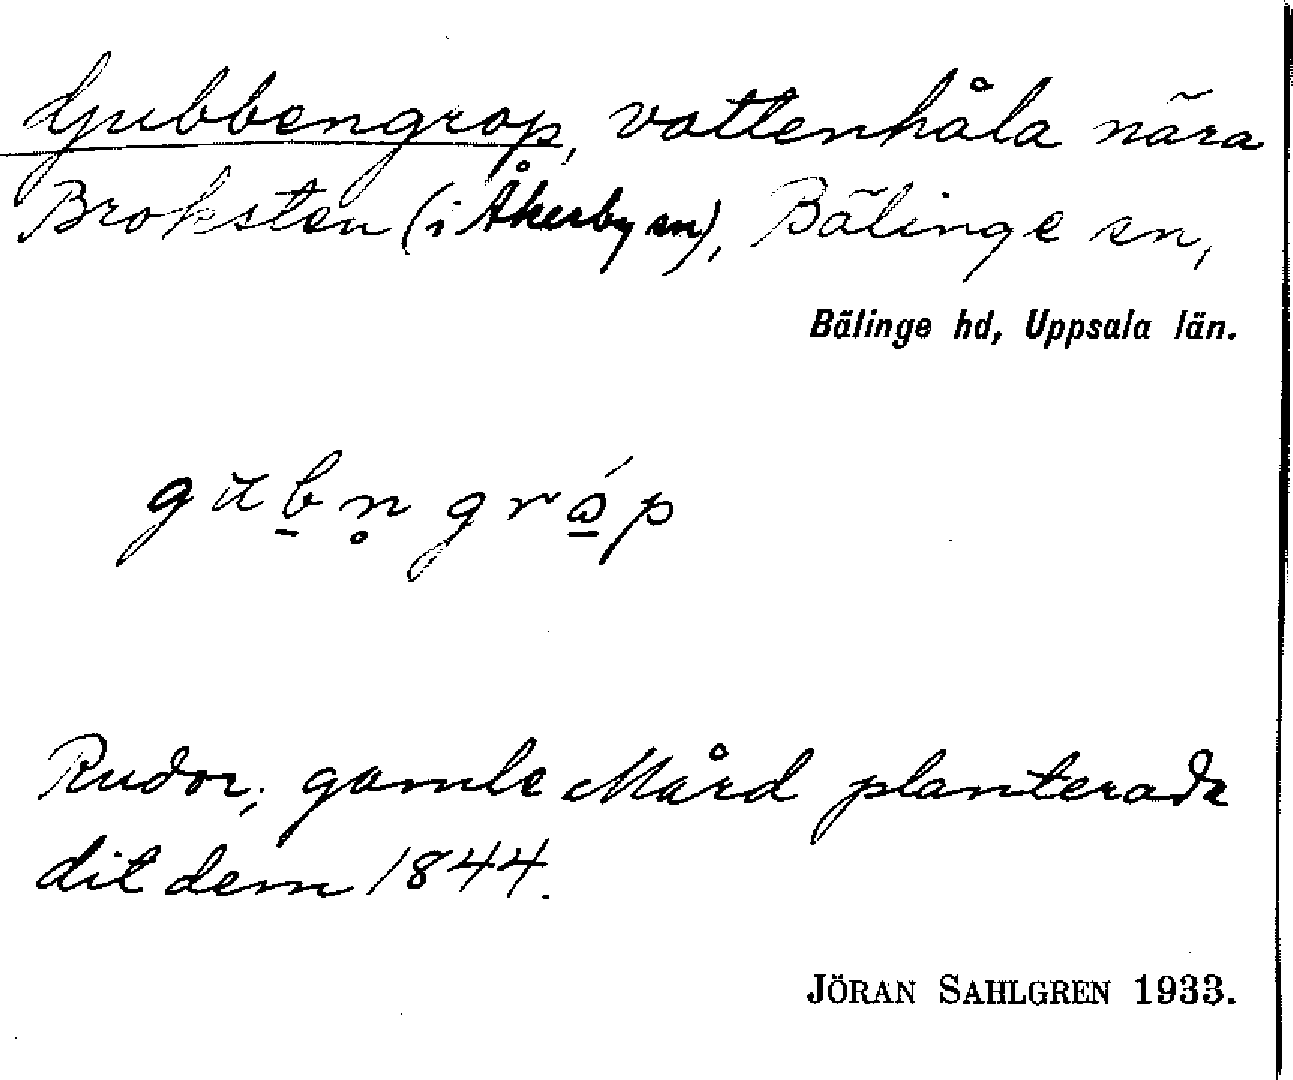 Gubbengrop, vattenhåla nära
Broksten (i Åkerby sn), Bälinge sn,
Bälinge hd, Uppsala län.
Rudor, gamle Mård planterade
dit dem 1844.
JÖRAN SAHLGREN 1933.